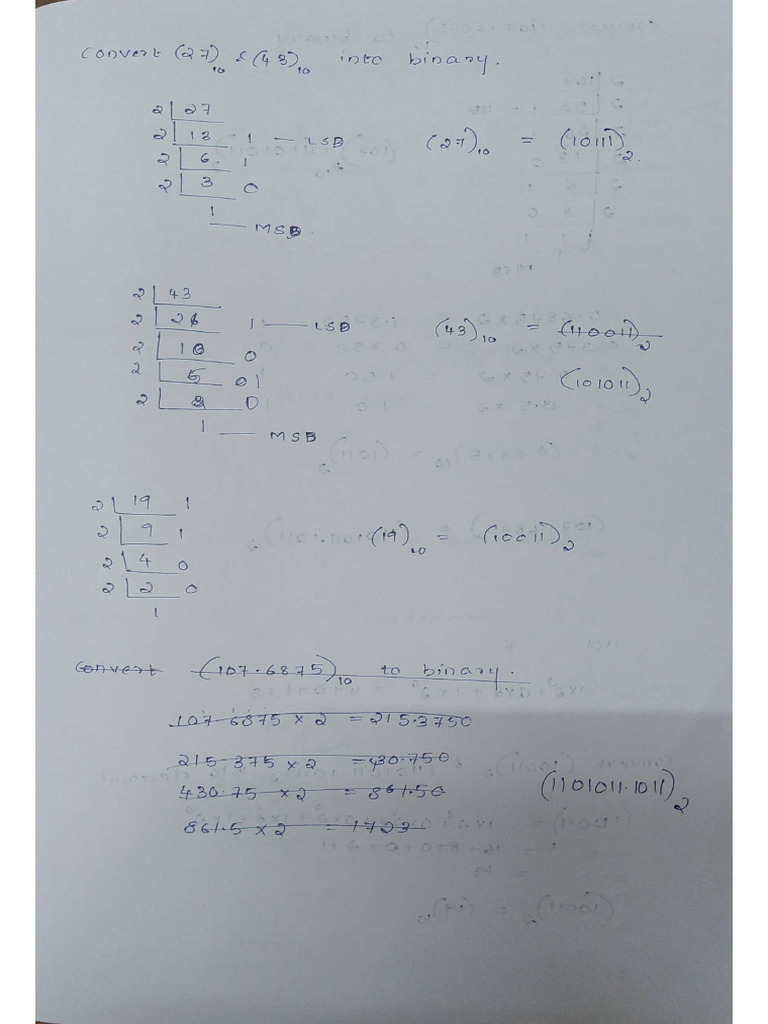 Convert (27)₁₀ & (43)₁₀ into binary.
2 | 27
2 | 13 1 — LSB (27)₁₀ = (10111)₂.
2 | 6 1
2 | 3 0
1
— MSB
2 | 43
2 | 21 1 — LSB (43)₁₀ = (110011)₂
2 | 10 0
2 | 5 01 (101011)₂
2 | 2 0
1
— MSB
2 | 19 1
2 | 9 1 (19)₁₀ = (10011)₂
2 | 4 0
2 | 2 0
1
Convert (107.6875)₁₀ to binary.
107.6875 × 2 = 215.3750
215.375 × 2 = 430.750
430.75 × 2 = 861.50 (1101011.1011)₂
861.5 × 2 = 1723